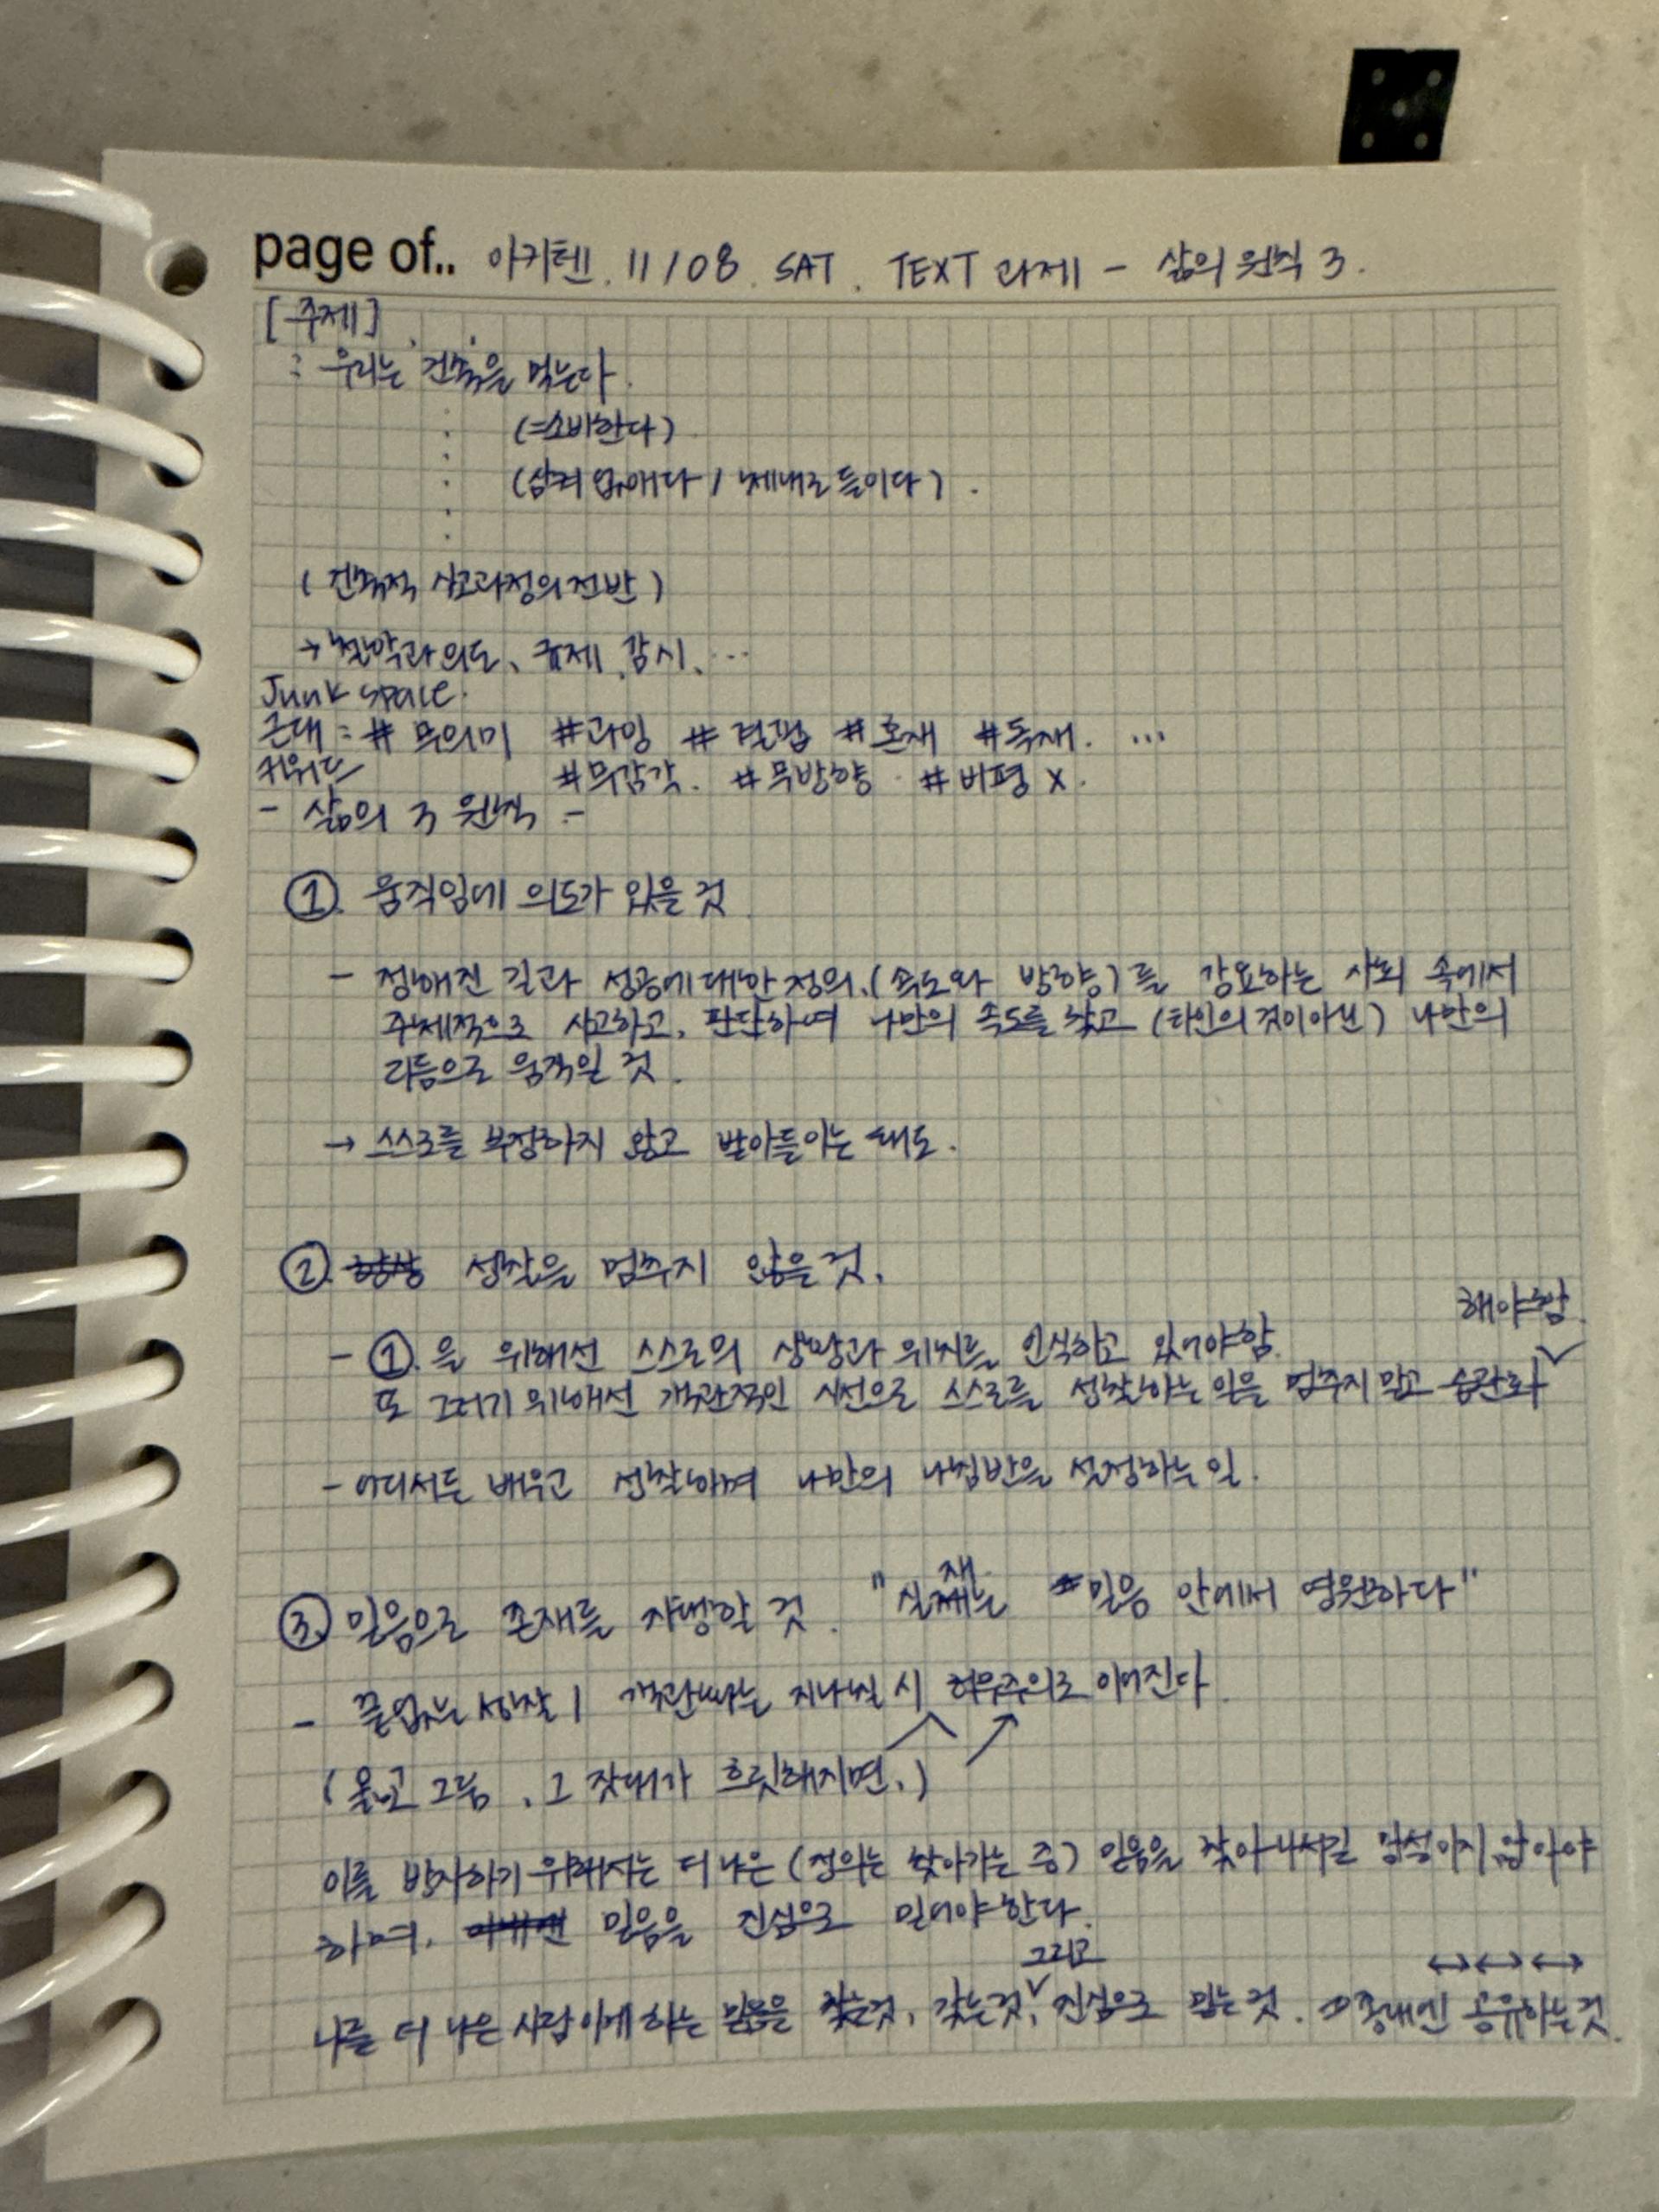 page of.. 아키텐. 11/08. SAT. TEXT 과제 - 삶의 원칙 3.
[주제]
: 우리는 건축을 먹는다.
(=소비한다)
(삼켜 없애다 / 체내로 들이다).
(건축적 사고과정의 전반)
→ 철학과 의도, 규제, 감시, …
Junk space.
근대 : # 무의미 #과잉 #결핍 #혼재 #독재. …
키워드 #무감각. #무방향. #비평 X.
- 삶의 3 원칙 -
①. 움직임에 의도가 있을 것
- 정해진 길과 성공에 대한 정의, (속도와 방향)를 강요하는 사회 속에서
주체적으로 사고하고, 판단하여 나만의 속도를 찾고 (타인의 것이 아닌) 나만의
리듬으로 움직일 것.
→ 스스로를 부정하지 않고 받아들이는 태도.
②. 항상 성찰을 멈추지 않을 것.
해야함.
- ①.을 위해선 스스로의 상황과 위치를 인식하고 있어야함.
또 그러기 위해선 객관적인 시선으로 스스로를 성찰하는 일을 멈추지 말고 습관화
- 어디서든 배우고 성찰하며 나만의 나침반을 설정하는 일.
③. 믿음으로 존재를 지탱할 것. "실재는 믿음 안에서 영원하다"
- 끝없는 성찰 / 객관화는 지나칠 시 허무주의로 이어진다
(옳고 그름, 그 잣대가 흐릿해지면,)
이를 방지하기 위해서는 더 나은 (정의는 찾아가는 중) 믿음을 찾아 나서길 망설이지 않아야
하며, 믿음을 진심으로 믿어야 한다.
그리고
나를 더 나은 사람이게 하는 믿음을 찾는것, 갖는것, 진심으로 믿는 것. 종내엔 공유하는 것.